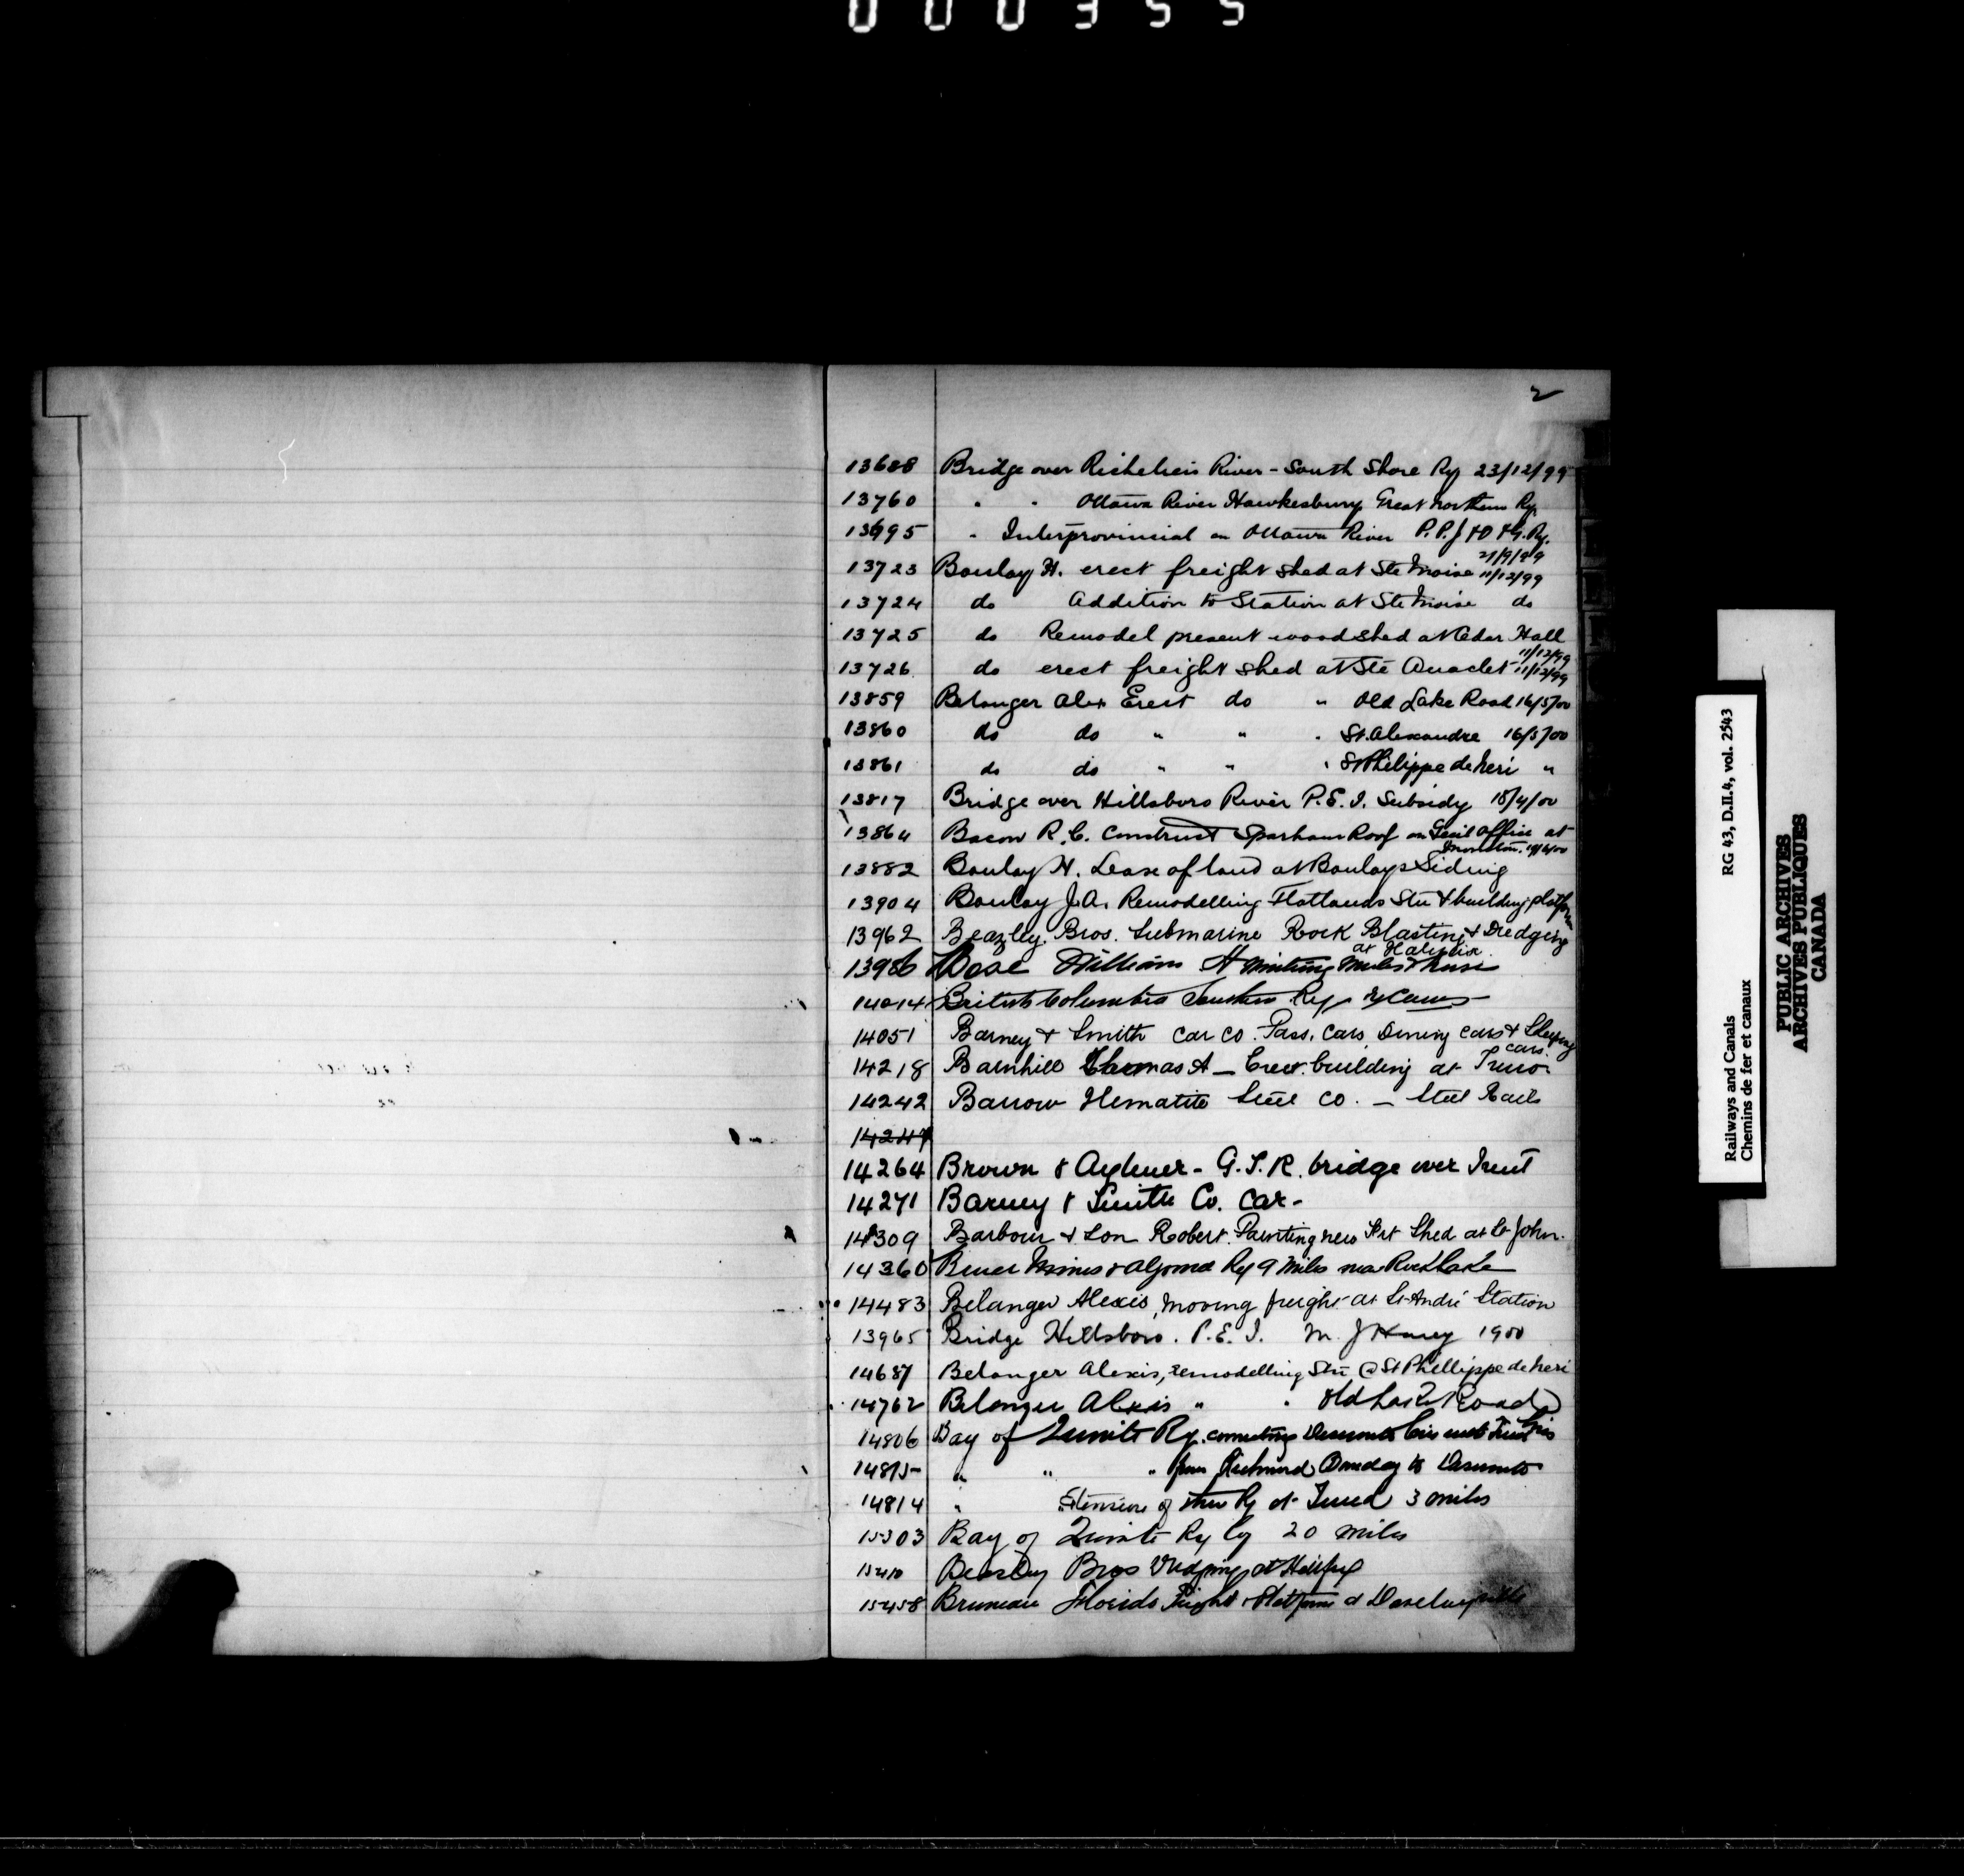 000355
2
13688 Bridge over Richelieu River - South Shore Ry 23/12/99
13760 " " Ottawa River Hawkesbury Great Northern Ry.
13695 " Interprovincial on Ottawa River P.P.J & O & G. Ry. 21/9/99
13723 Boulay H. erect freight shed at Ste Moise 11/12/99
13724 do Addition to Station at Ste Moise do
13725 do Remodel present woodshed at Cedar Hall 11/12/99
13726 do erect freight shed at Ste Anaclet 11/12/99
13859 Belanger Alex Erect do " Old Lake Road 16/5/00
13860 do do " " " St. Alexandre 16/5/00
13861 do do " " " St Philippe de Neri "
13817 Bridge over Hillsboro River P.E.I. Subsidy 18/4/00
13864 Bacon R.C. Construct Sparham Roof on Genl Office at
Moncton.
13882 Boulay H. Lease of land at Boulays Siding
13904 Boulay J.A. Remodelling Flatlands Stn & building platform
13962 Beazley Bros. Submarine Rock Blasting & Dredging
at Halifax
13986 Rose William H
14014 British Columbia Southern Ry
14051 Barney & Smith Car Co. Pass. Cars, Dining cars & Sleeping
cars.
14218 Barnhill Thomas A - Erect. building at Truro.
14242 Barrow Hematite Steel Co. - Steel Rails
14247
14264 Brown & Aylmer - G.T.R. bridge over Trent
14271 Barney & Smith Co. Car -
14309 Barbour & Son Robert. Painting new Frt Shed at St John.
14360 Bruce Mines & Algoma Ry 9 Miles near Rock Lake
14483 Belanger Alexis, moving freight at St André Station
13965 Bridge Hillsboro. P.E.I. M. J Haney 1900
14687 Belanger Alexis, remodelling Stn @ St Phillippe de Neri
14762 Belanger Alexis " " Old Lake Road
14806 Bay of Quinte Ry. connecting Deseronto
14815 " " " from Richmond Boundary to Deseronto
14814 " Extension of Ry at Tweed 3 miles
15303 Bay of Quinte Ry Co 20 miles
15410 Beazley Bros Dredging at Halifax
15458 Bruneau Floride Freight & Platform at
RG 43, D.II.4, vol. 2543
Railways and Canals
Chemins de fer et canaux
PUBLIC ARCHIVES
ARCHIVES PUBLIQUES
CANADA